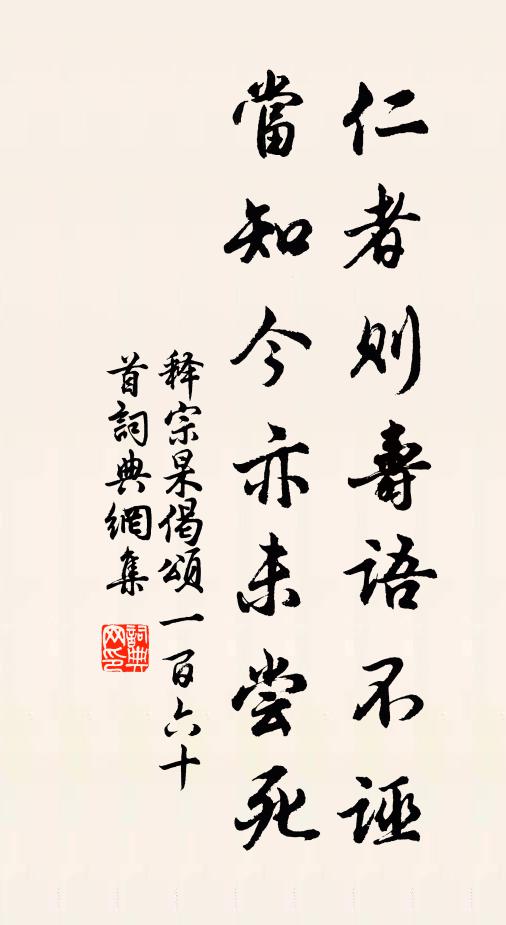 仁者則壽語不誣
當知今亦未尝死
释宗杲偈頌一百六十
首詞典網集
詞典
网印